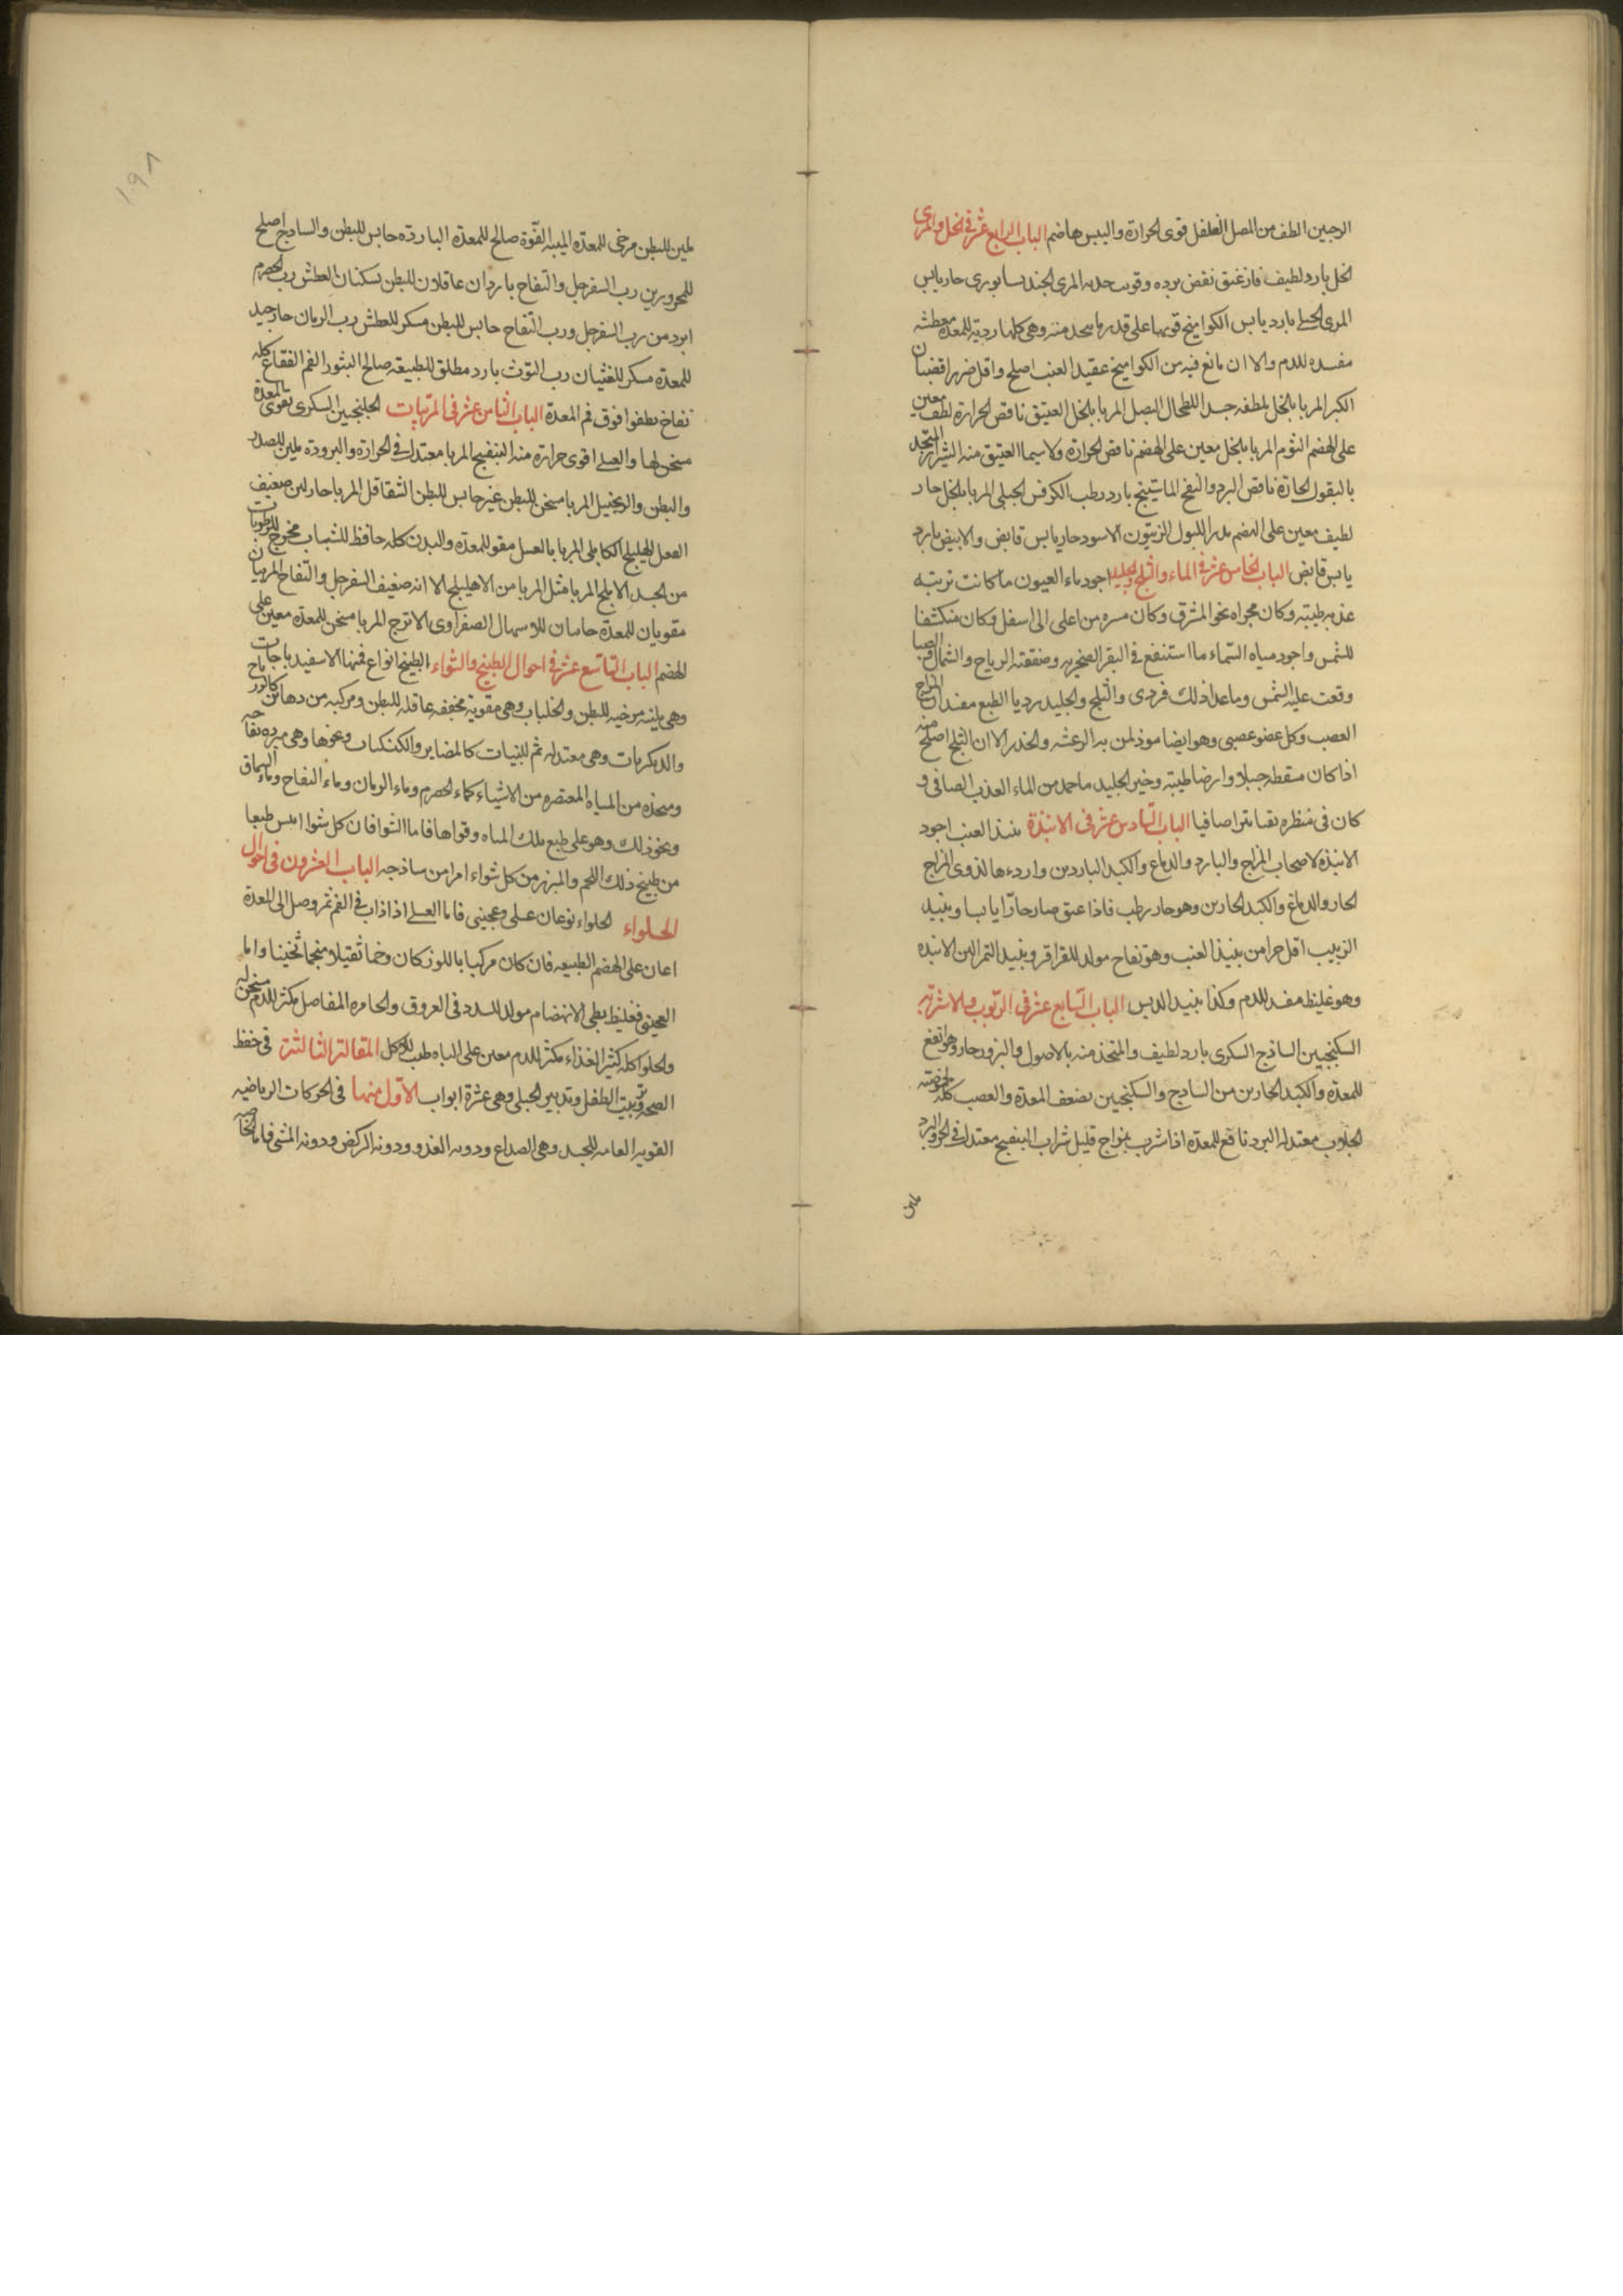 الرجبين الطف من المصل الفلفل قوى الحرارة واليبس هاضم الباب الرابع عشر في الخل والمرى
الخل بارد لطيف فان عتق نقص برده وقويت حدته المرى الجندىسابورى حار يابس
المرى بارد يابس الكواميخ قوتها على قدر ما يتخذ منه وهى كلها ردية للمعدة معطشه
مفسده للدم والا ان ما نع فيه من الكواميخ عقيد العنب اصلح واقل ضررا قضبان
الكبر المربا بالخل ملطفه جيد للطحال البصل المربا بالخل العتيق ناقص الحرارة لطف معين
على الهضم الثوم المربا بالخل معين على الهضم ناقص الحرارة ولا سيما العتيق منه الشيراز المتخذ
بالبقول الحارة ناقص البرد والنفخ الماستينج بارد رطب الكرفس الجبلى المربا بالخل حار
لطيف معين على الهضم مدر للبول الزيتون الاسود حار يابس قابض والابيض بارد
يابس قابض الباب الخامس عشر في الماء والثلج والجليد اجود ماء العيون ما كانت تربته
عذبه طيبته وكان مجراه نحو المشرق وكان مسره من اعلى الى اسفل وكان منكشفا
للشمس واجود مياه السماء ما استنقع فى البقر الصخريه وصفقته الرياح والشمال والصبا
وقعت عليه الشمس وما عدا ذلك فردى والثلج والجليد رديا الطبع مفسدان المزاج
العصب وكل عضو عصبى وهو ايضا موذ لمن به الرعشه والخدر الا ان الثلج اصلح منه
اذا كان مسقطه جبلا وارضا طيبته وخير الجليد ما جمد من الماء العذب الصافى و
كان فى منظره نقيا متراصافيا الباب السادس عشر في الانبذة نبيذ العنب اجود
الانبذه لاصحاب المزاج والبارد والدماغ والكبد الباردين واردءها لذوى المزاج
الحار والدماغ والكبد الحارين وهو حار رطب فاذا عتق صار حارا يابسا ونبيد
الزبيب اقل حرا من نبيذ العنب وهو نفاخ مولد للقراقر ونبيد التمر الين الانبذه
وهو غليظ مفسد للدم وكذا نبيد الدبس الباب السابع عشر في الربوب والاشربة
السكنجبين الساذج السكرى بارد لطيف والمتخذ منه بالاصول والبزور حار وهو انفع
للمعدة والكبد الحارين من الساذج والسكنجبين يضعف المعدة والعصب كله لحموضته
الجلاب معتدله البرد نافع للمعدة اذا شرب بمزاج قليل شراب البنفسج معتدل فى الحر والبرد
ملين
١٩٨
ملين للبطن مرخى للمعدة الميبه القوة صالح للمعدة البارده حابس للبطن والساذج اصلح
للمحرورين رب السفرجل والتفاح باردان عاقلان للبطن يسكنان العطش رب الحصرم
ابرد من رب السفرجل ورب التفاح حابس للبطن مسكن للعطش رب الرمان حار جيد
للمعدة مسكن للغثيان رب التوث بارد مطلق للطبيعة صالح البثور الفم الفقاع كله
نفاخ يطفوا فوق فم المعدة الباب الثامن عشر في المربيات الجلنجبين السكرى يقوى المعدة
مسخن لها والعسلى اقوى حرارة منه البنفسج المربا معتدل فى الحرارة والبرودة ملين للصدر
والبطن والزنجبيل المربا مسخن للبطن غير حابس للبطن الشقاقل المربا حار لين ضعيف
الفعل الهليلج الكابلى المربا بالعسل مقو للمعدة والبدن كله حافظ للشباب مخرج للرطوبات
من الجسد الاملج المربا مثل المربا من الاهليلج الا انه ضعيف السفرجل والتفاح المربيان
مقويان للمعدة حابسان للاسهال الصفراوى الاترج المربا مسخن للمعدة معين على
الهضم الباب التاسع عشر في احوال الطبيخ والشواء الطبيخ انواع فمنها الاسفيدباجات
وهى ملينه مرخيه للبطن ومقوية مجففه عاقله للبطن ومركبه من
والديكريكات وهى معتدله ثم اللبنيات كالمضاير والكشكيات ونحوها وهى مبرده نفاخه
ومتخذه من المياه المعتصره من الاشياء كماء الحصرم وماء الرمان وماء التفاح وماء السماق
ونحو ذلك وهو على طبع تلك المياه وقواها فاما الشوا فان كل شوا ايبس طبعا
من طبيخ ذلك اللحم والمبزر من كل شواء امرا من ساذجه الباب العشرون في احوال
الحلواء الحلواء نوعان عسلى وعجينى فاما العسلى اذا ذاب فى الفم ثم وصل الى المعدة
اعان على الهضم الطبيعه فان كان مركبا باللوز كان وخما ثقيلا منجما ثخينا واما
العجينى فغليظ بطى الانهضام مولد للسدد فى العروق والحامره المفاصل مكثر للدم مسخن له
والحلوا كله كثير الغذاء مكثر للدم معين على الباه طيب للاكل المقالة الثالثة فى حفظ
الصحة وتربيت الطفل وتدبير الحبلى وهى عشرة ابواب الاول منها فى الحركات الرياضيه
القويه العامه للجسد وهى الصداع ودونه العدو ودونه الركض ودونه المشى فاما الخاصه